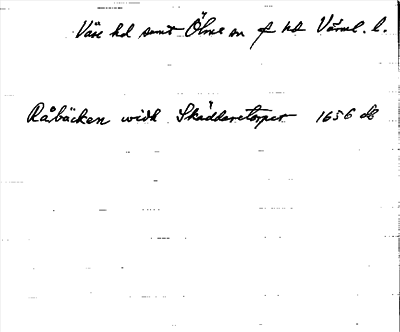 Väse hd samt Ölme sn o hd Värml. l.
Råbäcken widh Skädderetorper 1656 db